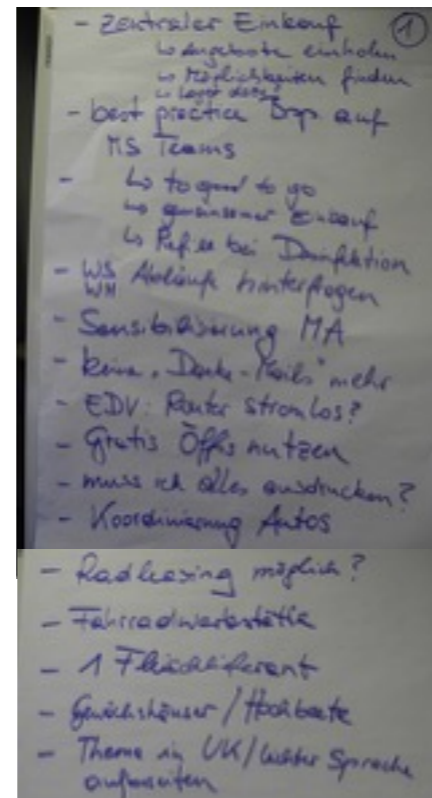 - Zentraler Einkauf ①
↳ Angebote einholen
↳ Möglichkeiten finden
↳ Lager dazu?
- best practice Bsp auf
MS Teams
- ↳ to good to go
↳ gemeinsamer Einkauf
↳ bei Desinfektion
- WS Abläufe hinterfragen
WH
- Sensibilisierung MA
- keine "Danke-Mails" mehr
- EDV: Router stromlos?
- Gratis Öffis nutzen
- muss ich alles ausdrucken?
- Koordinierung Autos
- Radleasing möglich?
- Fahrradwerkstätte
- 1 Fleischlieferant
- Gewächshäuser / Hochbeete
- Thema in UK / leichter Sprache
aufbereiten